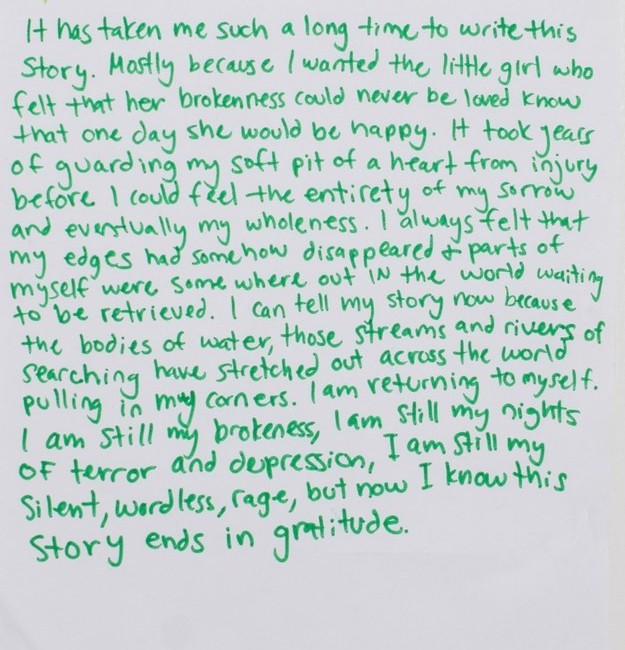 It has taken me such a long time to write this
Story. Mostly because I wanted the little girl who
felt that her brokenness could never be loved know
that one day she would be happy. It took years
of guarding my soft pit of a heart from injury
before I could feel the entirety of my sorrow
and eventually my wholeness. I always felt that
my edges had somehow disappeared & parts of
myself were some where out IN the world waiting
to be retrieved. I can tell my story now because
the bodies of water, those streams and rivers of
searching have stretched out across the world
pulling in my corners. I am returning to myself.
I am still my brokeness, I am still my nights
OF terror and depression, I am still my
Silent, wordless, rage, but now I know this
Story ends in gratitude.